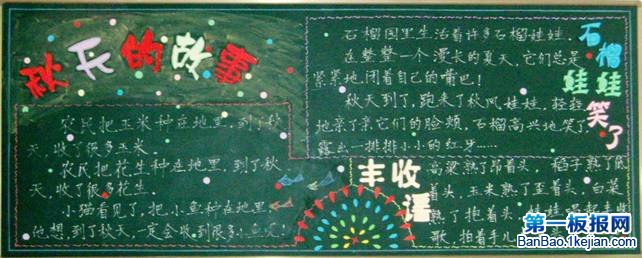 秋天的故事
农民把玉米种在地里，到了秋
天，收了很多玉米。
农民把花生种在地里，到了秋
天，收了很多花生。
小猫看见了，把小鱼种在地里
他想，到了秋天，一定会收到很多小鱼
石榴娃娃笑了
石榴园里生活着许多石榴娃娃。
在整整一个漫长的夏天，它们总是
紧紧地闭着自己的嘴巴！
秋天到了，跑来了秋风娃娃，轻轻
地亲了亲它们的脸颊，石榴高兴地笑了，
露出一排排小小的红牙……
丰收语
高粱熟了昂着头，稻子熟了
着头，玉米熟了歪着头，白菜
熟了抱着头，娃娃
歌，拍着手儿
第一板报网
BanBao.1kejian.com